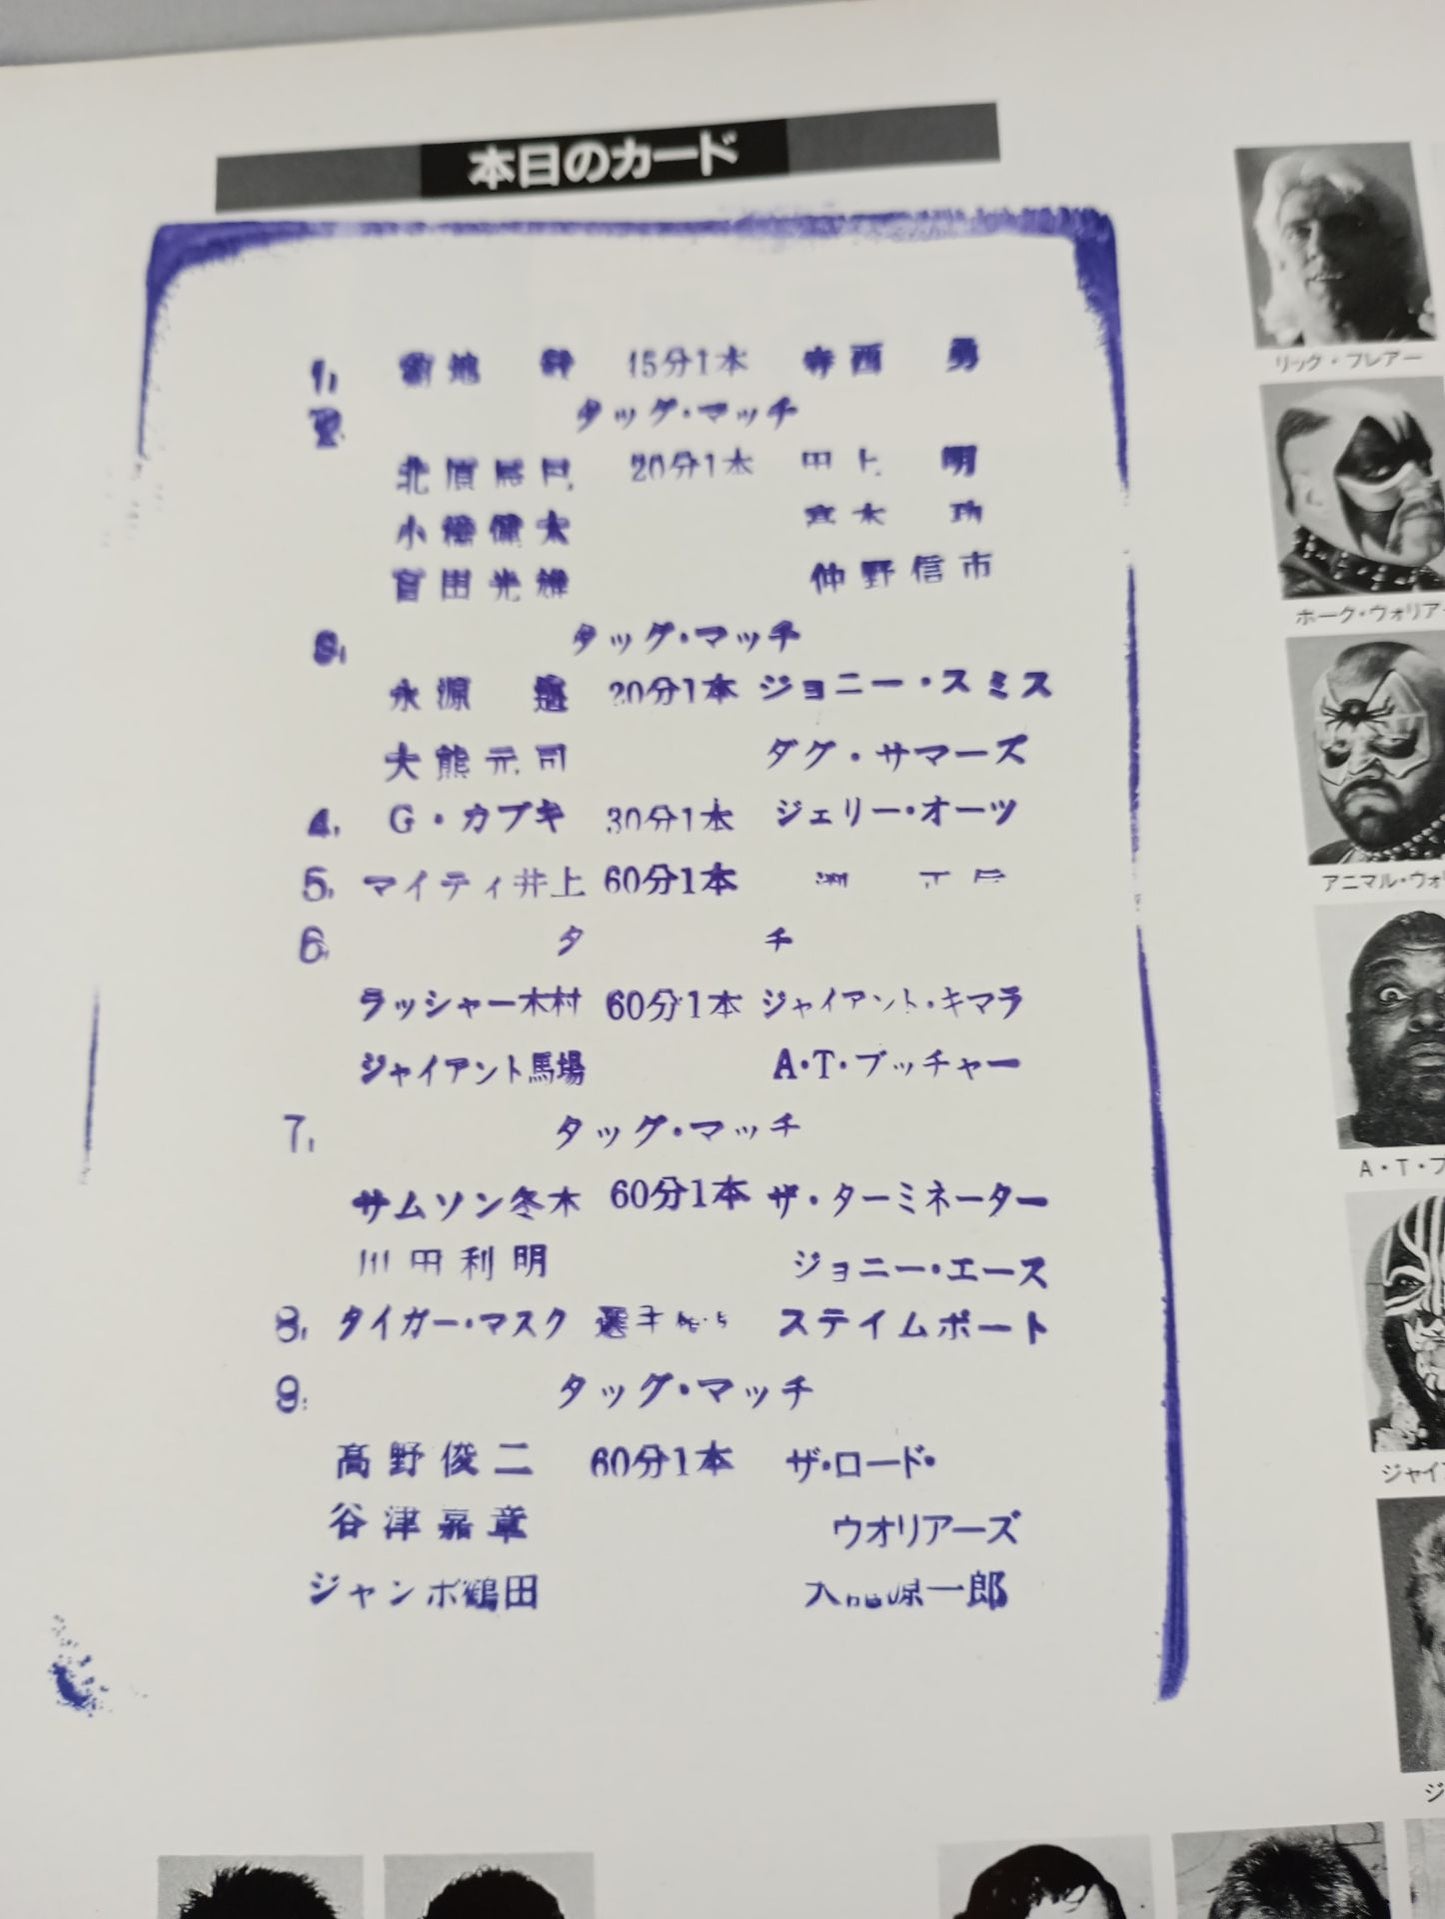 本日のカード
1. 菊地 15分1本 寺西 勇
2. タッグ・マッチ
北原 20分1本 田上 明
小橋健太
仲野信市
3. タッグ・マッチ
永源 遙 20分1本 ジョニー・スミス
大熊元司 ダグ・サマーズ
4. G・カブキ 30分1本 ジェリー・オーツ
5. マイティ井上 60分1本
6. タ チ
ラッシャー木村 60分1本 ジャイアント・キマラ
ジャイアント馬場 A・T・ブッチャー
7. タッグ・マッチ
サムソン冬木 60分1本 ザ・ターミネーター
川田利明 ジョニー・エース
8. タイガー・マスク ステイムボート
9. タッグ・マッチ
高野俊二 60分1本 ザ・ロード・
谷津嘉章 ウオリアーズ
ジャンボ鶴田 源一郎
リック・フレアー
ホーク・ウォリア
アニマル・ウォ
A・T・ブ
ジャイ
ジ